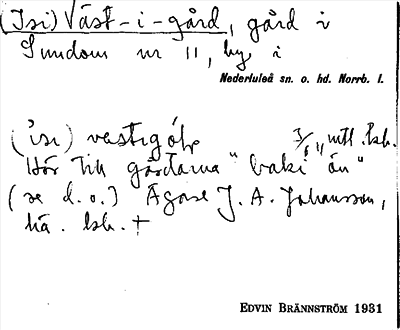 (Isi) Väst-i-gård, gård i
Sundom nr 11, by i
Nederluleå sn. o. hd. Norrb. l.
('isi) vestigó
3/6 11 mtl. bsk.
Hör till gårdarna "baki ån"
(se d.o.) Ägare J. A. Johansson,
hä. bsk. +
EDVIN BRÄNNSTRÖM 1931